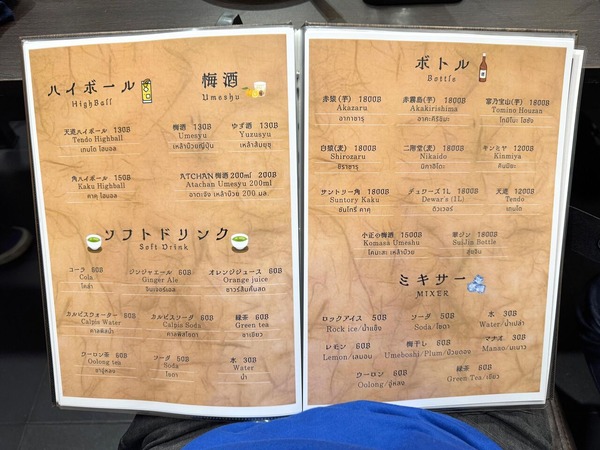 ハイボール
HighBall
梅酒
Umeshu
天遊ハイボール 130B
Tendo Highball
เทนโด ไฮบอล
梅酒 130B
Umesyu
เหล้าบ๊วยญี่ปุ่น
ゆず酒 130B
Yuzusyu
เหล้าส้มยูซุ
角ハイボール 150B
Kaku Highball
คาคุ ไฮบอล
ATCHAN 梅酒 200ml 200B
Atachan Umesyu 200ml
อาตะจัง เหล้าบ๊วย 200 มล.
ソフトドリンク
Soft Drink
コーラ 60B
Cola
โคล่า
ジンジャエール 60B
Ginger Ale
จินเจอร์เอล
オレンジジュース 60B
Orange juice
ซาวร์ส้มคั้นสด
カルピスウォーター 80B
Calpis Water
คาลพิสน้ำ
カルピスソーダ 80B
Calpis Soda
คาลพิสโซดา
緑茶 60B
Green tea
ชาเขียว
ウーロン茶 60B
Oolong tea
ชาอู่หลง
ソーダ 50B
Soda
โซดา
水 30B
Water
น้ำ
ボトル
Bottle
赤猿 (芋) 1800B
Akazaru
อากาซารุ
赤霧島(芋) 1800B
Akakirishima
อาคะคิริชิมะ
富乃宝山(芋) 1800B
Tomino Houzan
โทมิโนะ โฮซัง
白猿(麦) 1800B
Shirozaru
ชิราซารุ
二階堂(麦) 1800B
Nikaido
นิคาอิโดะ
キンミヤ 1200B
Kinmiya
คินมิยะ
サントリー角 1800B
Suntory Kaku
ซันโทรี่ คาคุ
デュワーズ 1L 1800B
Dewar's (1L)
ดิวเวอร์
天遊 1200B
Tendo
เทนโด
小正小梅酒 1500B
Komasa Umeshu
โคมาสะ เหล้าบ๊วย
翠ジン 1800B
SuiJin Bottle
สุ่ยจิน
ミキサー
MIXER
ロックアイス 50B
Rock ice/น้ำแข็ง
ソーダ 50B
Soda/โซดา
水 30B
Water/น้ำเปล่า
レモン 60B
Lemon/เลมอน
梅干し 60B
Umeboshi/Plum/บ๊วยดอง
マナオ 30B
Manao/มะนาว
ウーロン 60B
Oolong/อู่หลง
緑茶 60B
Green Tea/เขียว